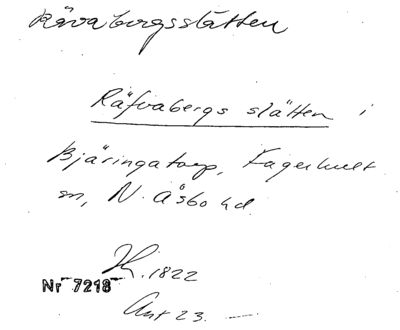 Rävabergsslätten
Räfvabergs slätten i
Bjäringatorp, Fagerhult
sn, N. Åsbo hd.
1822
Nr 7218
Akt 23.